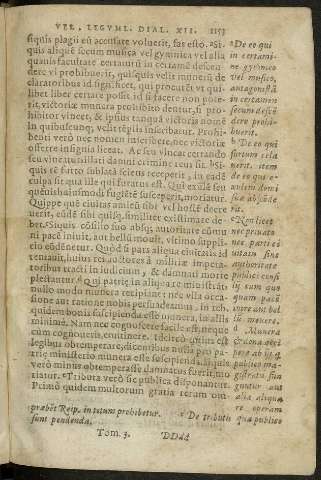 VER. LEGVM. DIAL. XII. 1153
siquis plagii eū accusare voluerit, fas esto. ᵃSi-
quis aliquē secum musica vel gymnica vel alia
quauis facultate certaturū in certamē descen-
dere vi prohibuerit, quisquis velit munerū de
claratoribus id significet, qui procurēt vt qui-
libet liber certare possit. id si facere non pote-
rit, victoriæ munera prohibito dentur, si pro-
hibitor vincet, & ipsius tanquā victoris nomē
In quibuscunq; velit tēplis inscribatur. Prohi-
benti verò nec nomen inscribere, nec victoriæ
offerre insignia liceat. Ac seu vincat certando
seu vincatur illati damni crimine reus sit. ᵇSi-
quis rē furto sublatā sciens receperit, in eadē
culpa sit qua ille qui furatus est. Qui exulē seu
quēuis hac ratione fugiētē susceperit, moriatur.
Quippe quē ciuitas amicū sibi vel hostē decre
uerit, eūdē sibi quisq; similiter existimare de-
bet. ᶜSiquis cōsilio suo absq; autoritate cōmu
ni pacē iniuit, aut bellū mouit, vltimo suppli-
cio eūdē necetur. Quòd si pars aliqua ciuitatis id
tentauit, huius rei autores à militiæ impera-
toribus tracti in iudicium, & damnati morte
plectantur. ᵈQui patriæ in aliquare ministrāt
nullo modo munera recipiant: nec vlla occa-
sione aut ratione nobis persuadeamus, in reb.
quidem bonis suscipienda esse munera, in aliis
minimè. Nam nec cognoscere facile est, neque
cum cognoueris, continere. Idcirco tutius est
legibus obtemperare, dicentibus nulla pro pa-
triæ ministerio munera esse suscipienda. aliqui
verò minus obtemperasse damnatus fuerit, mo
riatur. ᵉTributa verò sic publica disponantur.
Primò quidem multorum gratia rerum vni-
ᵃ De eo qui
in certami-
ne gymnico
vel musico,
antagonistā
in certamen
secum descē
dere prohi-
buerit.
ᵇ De eo qui
furtum cela
uerit. item
de eo qui e-
xulem domi
suæ absconde
rit.
ᶜ Non licet
nec priuato
nec parti ci
uitatis sine
authoritate
publice consi
lij cum quo
quam pacē
inire aut bel
lū mouere.
ᵈ Munera
& xenia acci
pere ab ijs q
publico ma-
gistratu fun
guntur aut
alias aliquam
operam
publice
præbēt Reip. in totum prohibetur. ᵉ De tributis
sunt pendenda.
Tom. 3. DDdd